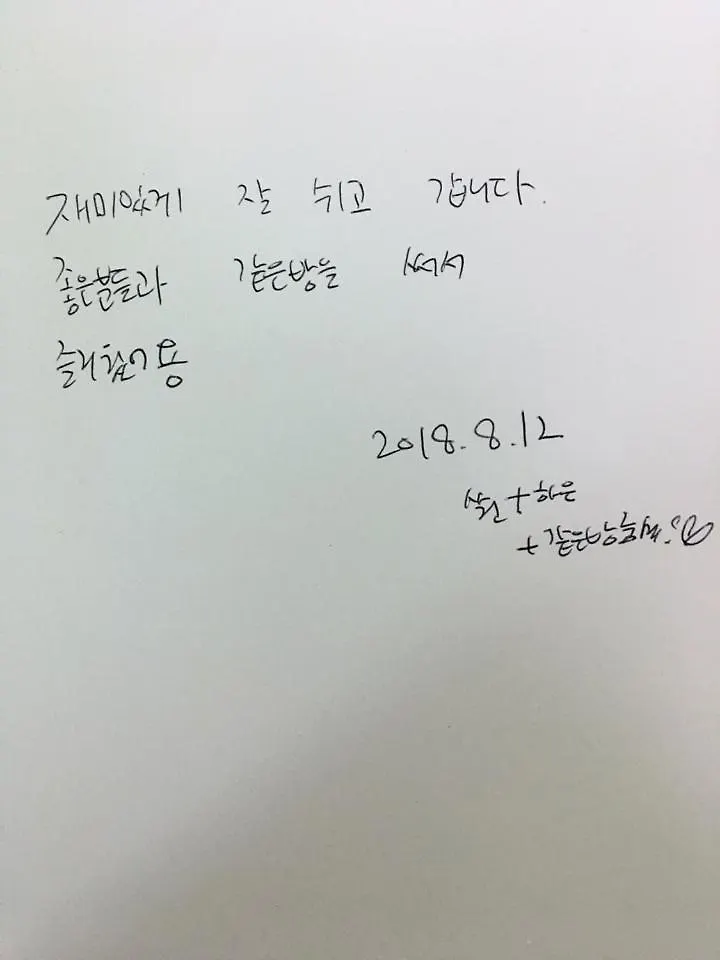 재미있게 잘 쉬고 갑니다.
좋은분들과 같은방을 써서
즐거웠어용
2018.8.12
+하은
+같은방